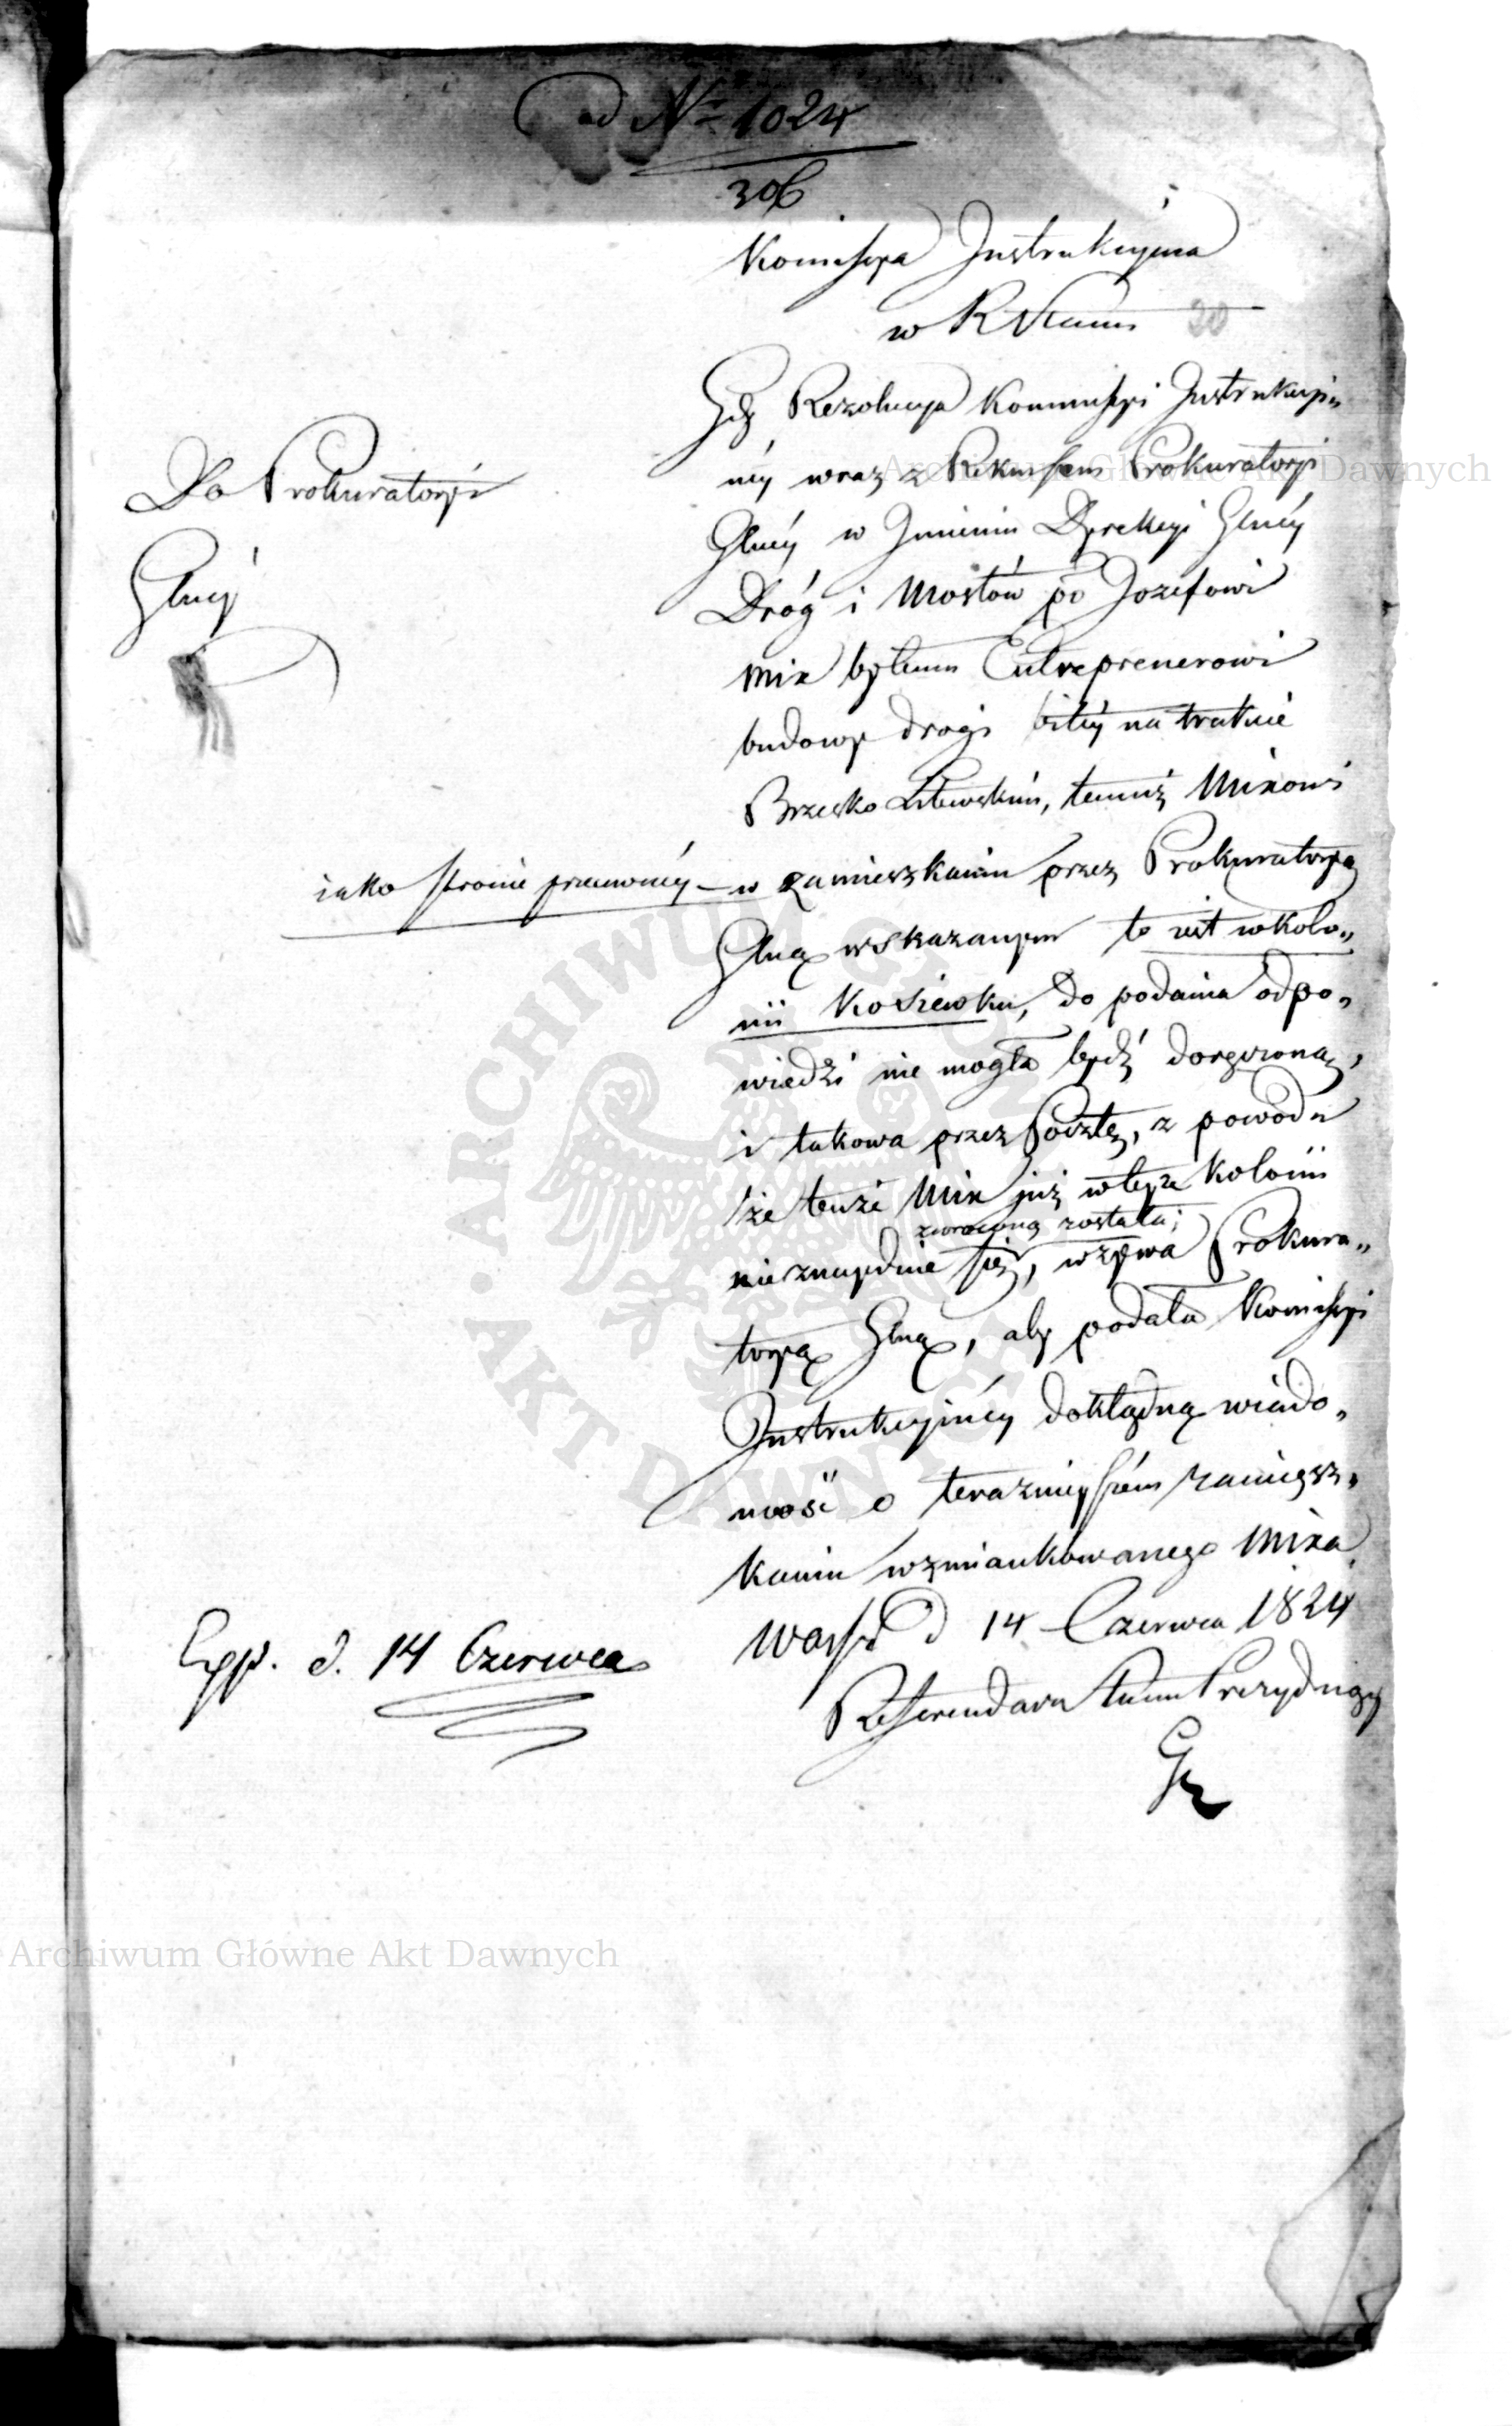 ad No 1024
306
Kommissya Instrukcyjna
w R Stanu
20
Gdy Rezolucya Kommissyi Instrukcyi„
néy wraz z Rekursem Prokuratoryi
Głnéy w Imieniu Dyrekcyi Głnéy
Dróg i Mostów po Jozefowi
Mix byłemu Entreprenerowi
budowy drogi bitéy na trakcie
Brzesko Litewskim, temuż Mixowi
iako stronie przeciwnéy – w zamieszkaniu przez Prokuratoryą
Głną wskazanym to iest w Kolo„
nii Kosiewku, do podania odpo„
wiedzi nie mogła bydź doręczoną,
i takowa przez Pocztę, z powodu
że tenże Mix już w teyże Kolonii
zwroconą została;
nieznayduie się, wzywa Prokura„
toryą Głną, aby podała Kommissyi
Instrukcyjnéy dokładną wiado„
mość o teraznieyszém zamiesz„
kaniu wzmiankowanego Mixa
Warsz d 14 Czerwca 1824
Referendarz Stanu Prezydujący
Do Prokuratoryi
Głnéy
Exp. d. 14 Czerwca
Archiwum Główne Akt Dawnych
Archiwum Główne Akt Dawnych